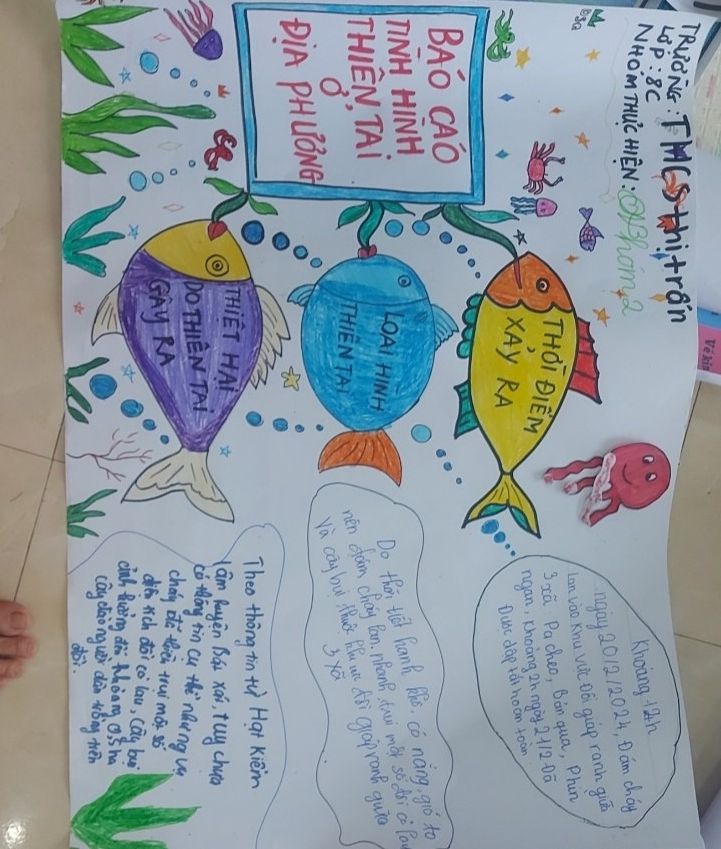 TRƯỜNG: TMCS thị trấn
LỚP: 8C
NHÓM THỰC HIỆN: Nhóm 2
BÁO CÁO
TÌNH HÌNH
THIÊN TAI
Ở
ĐỊA PHƯƠNG
THỜI ĐIỂM
XẢY RA
LOẠI HÌNH
THIÊN TAI
THIỆT HẠI
DO THIÊN TAI
GÂY RA
Khoảng 12h
ngày 20/2/2024, Đám cháy
lan vào khu vực đồi giáp ranh giữa
3 xã Pa cheo, Bản qua, Phìn
ngan. Khoảng 2h ngày 21/2 Đã
Được dập tắt hoàn toàn
Do thời tiết hanh khô, có nắng gió to
nên đám cháy lan nhanh thui một số đồi cỏ lau
và cây bụi thuộc khu vực đồi giáp ranh giữa
3 xã
Theo thông tin từ Hạt kiểm
lâm huyện Bát Xát, tuy chưa
có thông tin cụ thể nhưng vụ
cháy đã thiêu trụi một số
diện tích đồi cỏ lau, cây bụi
ảnh hưởng đến khoảng 0,3 ha
cây do người dân trồng trên
đồi.
Vẽ kín